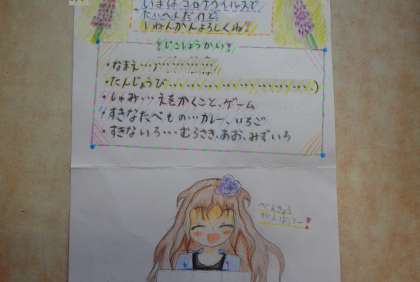 いまはコロナウイルスで、
たいへんだけど
いちねんかんよろしくね!
!じこしょうかい!
・なまえ…
・たんじょうび…
・しゅみ…えをかくこと、ゲーム
・すきなたべもの…カレー、いちご
・すきないろ…むらさき、あお、みずいろ
べんきょう
がんばってー!